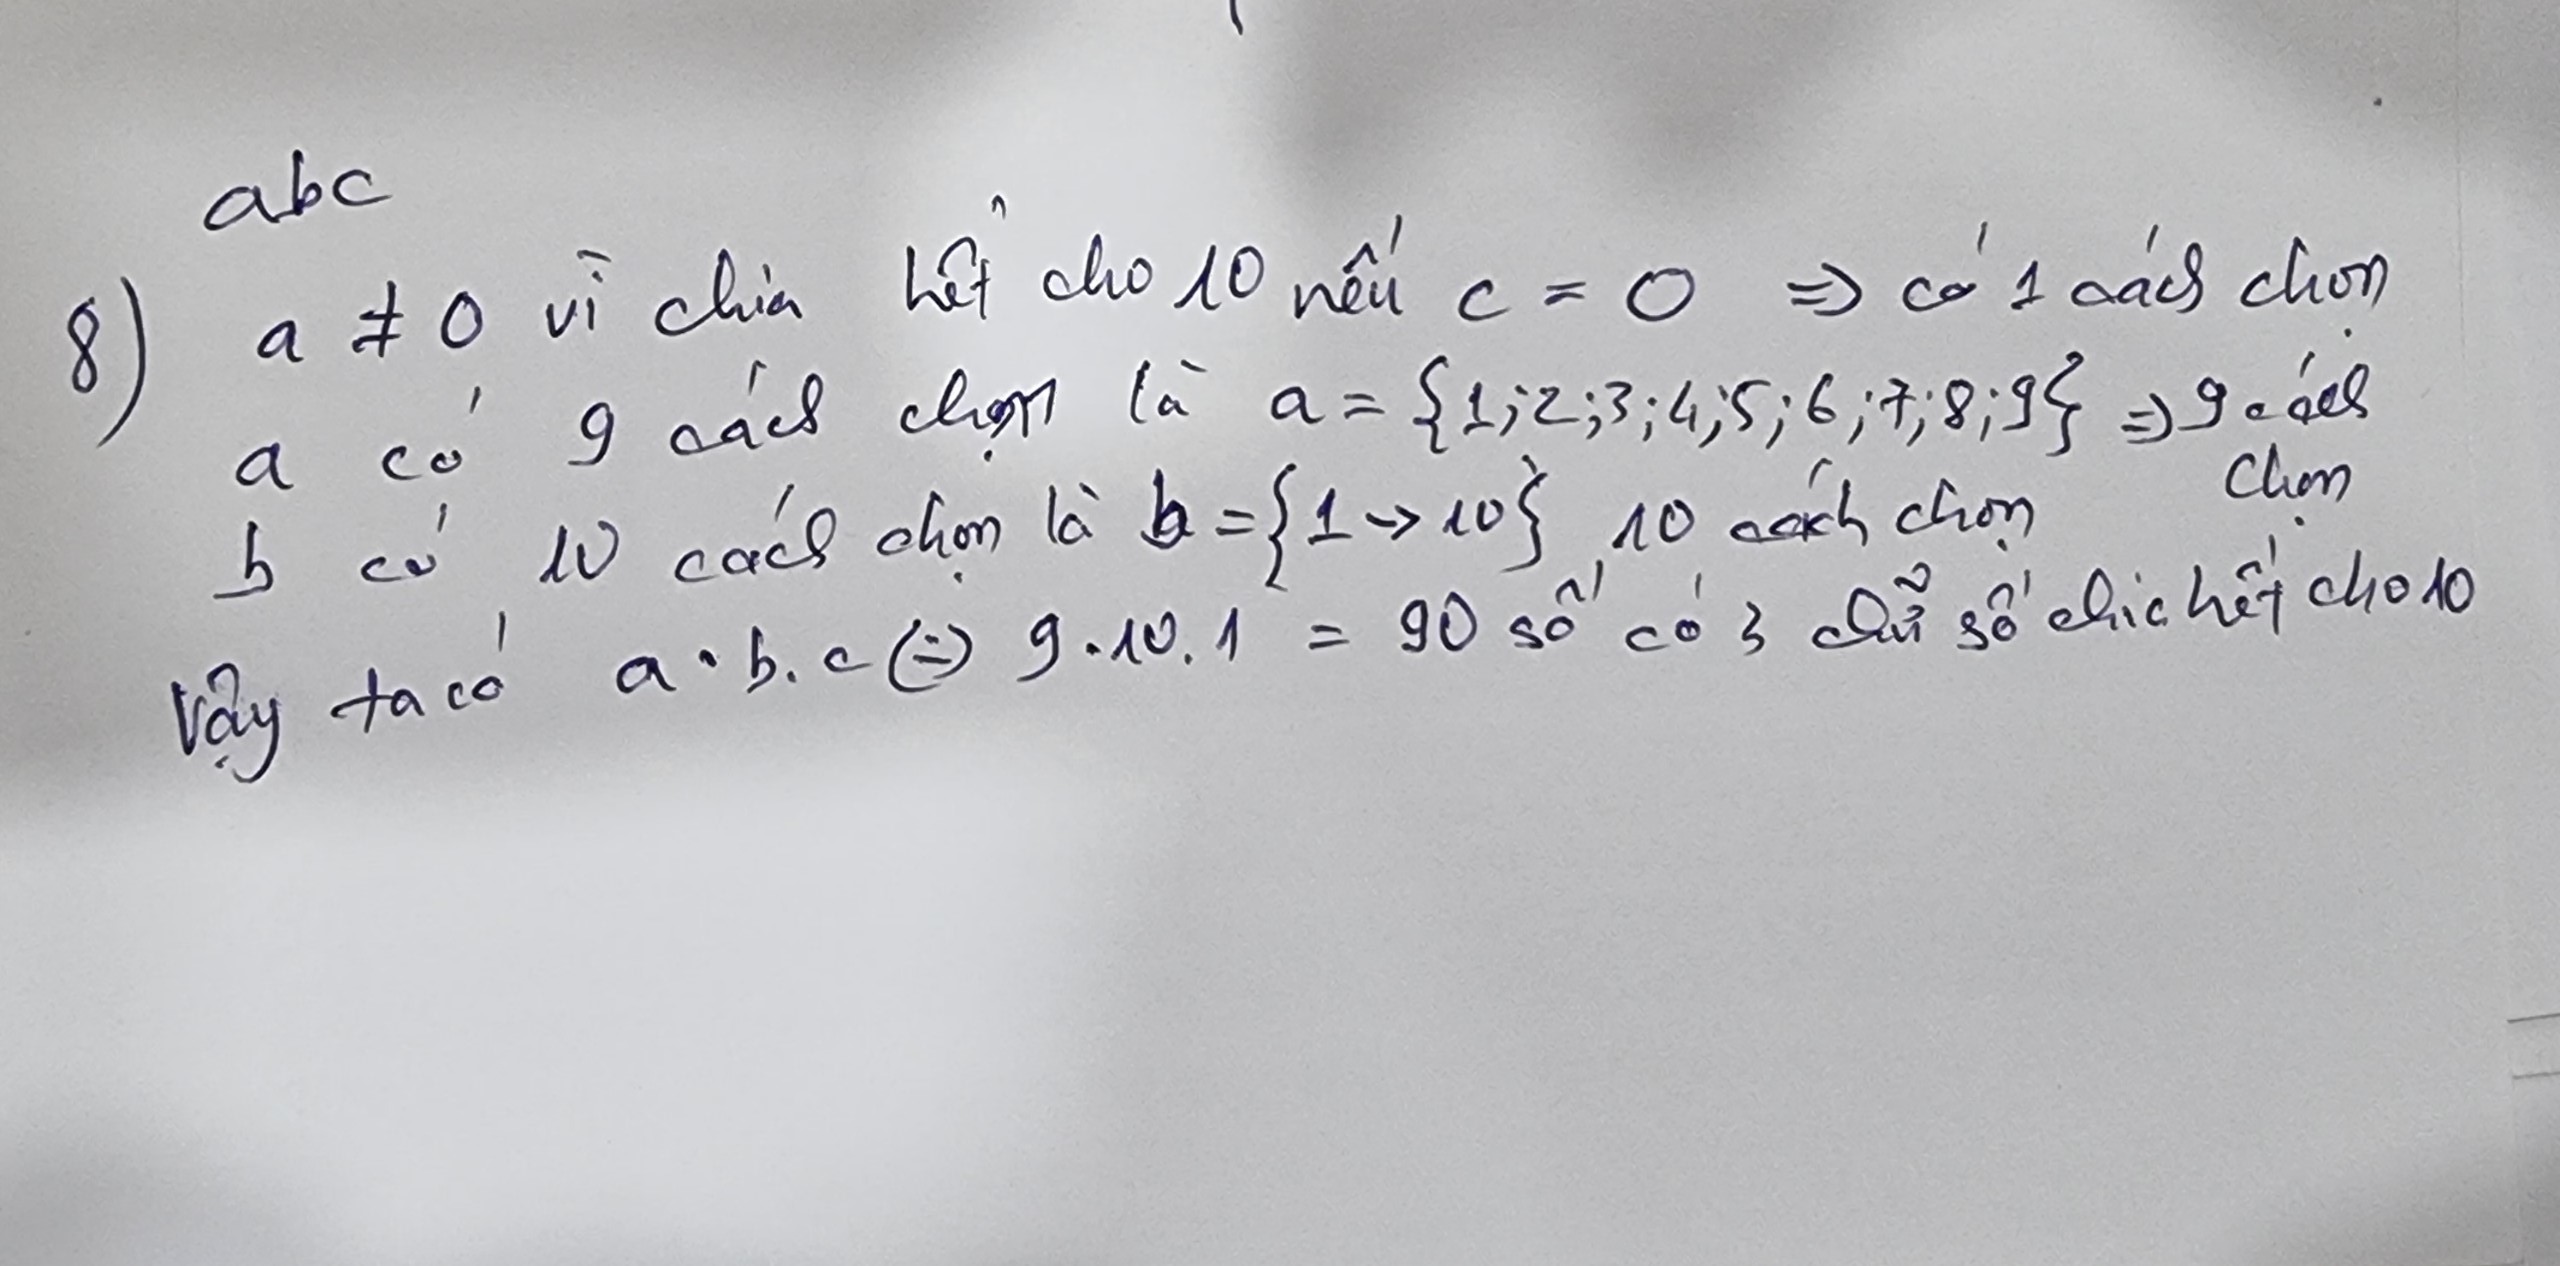 abc
8) a ≠ 0 vì chia hết cho 10 nếu c = 0 => có 1 cách chọn
a có 9 cách chọn là a = {1;2;3;4;5;6;7;8;9} => 9 cách
chọn
b có 10 cách chọn là b = {1 → 10} 10 cách chọn
Vậy ta có a . b . c (=) 9 . 10 . 1 = 90 số có 3 chữ số chia hết cho 10